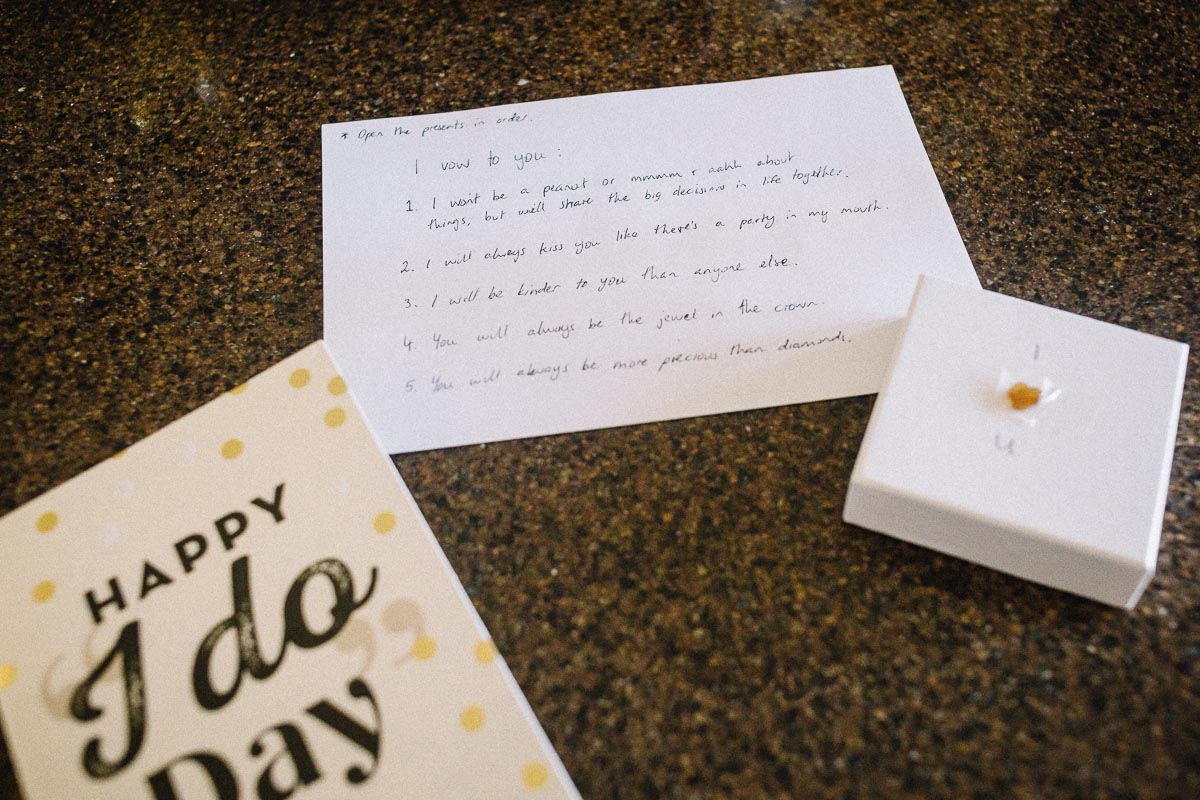 * Open the presents in order.
I vow to you :
1. I won't be a peanut or mmmm & aahh about
things, but we'll share the big decisions in life together.
2. I will always kiss you like there's a party in my mouth.
3. I will be kinder to you than anyone else.
4. You will always be the jewel in the crown.
5. You will always be more precious than diamonds.
HAPPY
I do
Day
1
4